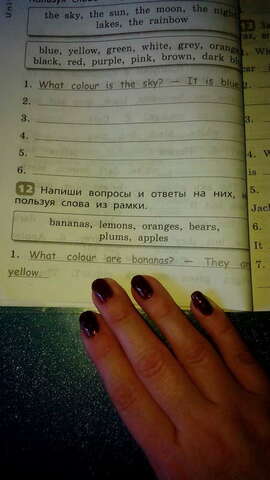 the sky, the sun, the moon, the night
lakes, the rainbow
blue, yellow, green, white, grey, orange,
black, red, purple, pink, brown, dark bl
1. What colour is the sky? — It is blue.
2.
3.
4.
5.
6.
12 Напиши вопросы и ответы на них, и
пользуя слова из рамки.
bananas, lemons, oranges, bears,
plums, apples
1. What colour are bananas? — They ar
yellow.
1. W
4. W
is
5.
Jac
6.
It
7.